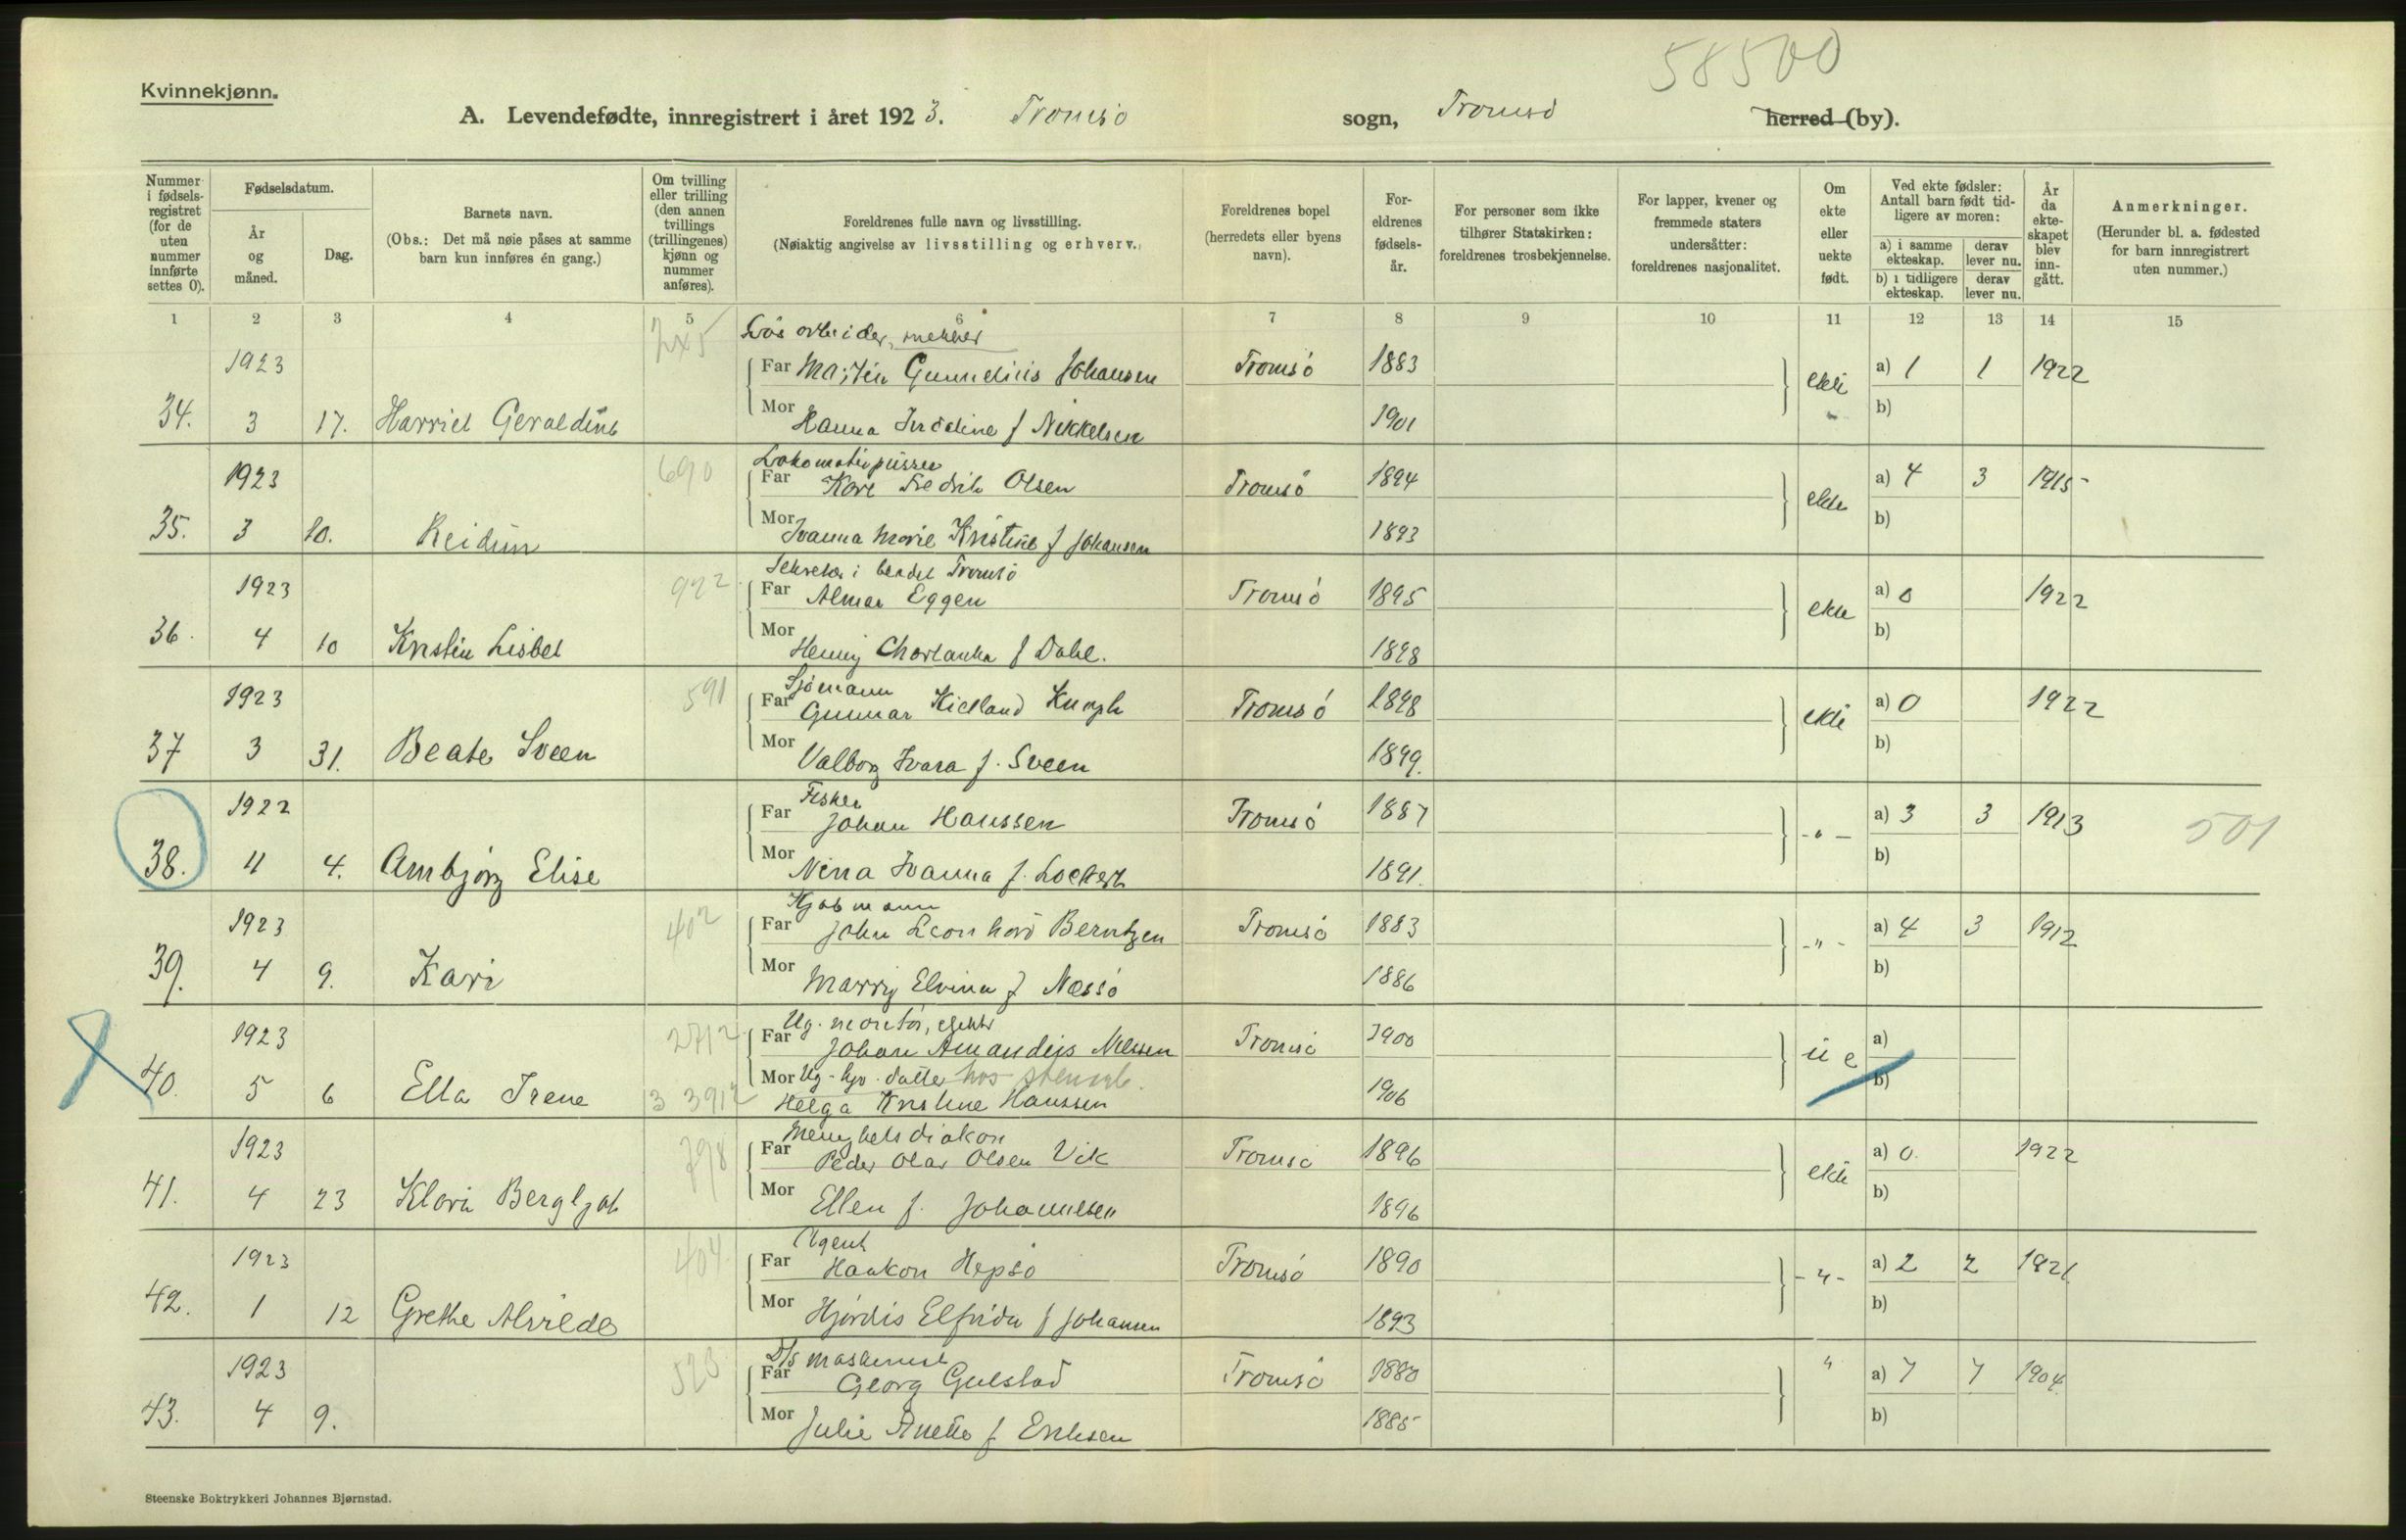 58500
Kvinnekjønn.
A. Levendefødte, innregistrert i året 1923. Tromsø sogn, Tromsø herred (by).
Nummer i fødsels-registret (for de uten nummer innførte settes 0).
Fødselsdatum.
År og måned.
Dag.
Barnets navn.
(Obs.: Det må nøie påses at samme barn kun innføres én gang.)
Om tvilling eller trilling (den annen tvillings (trillingenes) kjønn og nummer anføres).
Foreldrenes fulle navn og livsstilling.
(Nøiaktig angivelse av livsstilling og erhverv.)
Foreldrenes bopel (herredets eller byens navn).
For-eldrenes fødsels-år.
For personer som ikke tilhører Statskirken: foreldrenes trosbekjennelse.
For lapper, kvener og fremmede staters undersåtter: foreldrenes nasjonalitet.
Om ekte eller uekte født.
Ved ekte fødsler: Antall barn født tid-ligere av moren:
a) i samme ekteskap.
derav lever nu.
b) i tidligere ekteskap.
derav lever nu.
År da ekte-skapet blev inn-gått.
Anmerkninger.
(Herunder bl. a. fødested for barn innregistrert uten nummer.)
1 2 3 4 5 6 7 8 9 10 11 12 13 14 15
Løsarbeider,
1923 Far Johansen Tromsø 1883 ekte a) 1 1 1922
34. 3 17. Harriet Geraldine Mor Hanna f Nikkelsen 1901 b)
690 Lokomotivpusser
1923 Far Kåre Fredrik Olsen Tromsø 1894 ekte a) 4 3 1915
35. 3 10. Reidun Mor Ivanna Marie Kristine f Johansen 1893 b)
922 Sekretær i bladet Tromsø
1923 Far Almar Eggen Tromsø 1895 ekte a) 0 1922
36. 4 10 Kristin Lisbet Mor Henny f Dahl. 1898 b)
591 Sjømann
1923 Far Gunnar Kielland Tromsø 1898 ekte a) 0 1922
37 3 31. Beate Sveen Mor Valborg Ivara f. Sveen 1899. b)
Fisker
1922 Far Johan Hanssen Tromsø 1887 -"- a) 3 3 1913 501
38. 11 4. Arnbjørg Elise Mor Nina Ivanna f. Lockert 1891. b)
402 Kjøbmann
1923 Far John Leonhard Berntzen Tromsø 1883 -"- a) 4 3 1912
39. 4 9. Kari Mor Marry Elvina f Næssø 1886 b)
2712 Ug. montør,
1923 Far Johan Amandus Nilssen Tromsø 1900 u e a)
Mor Ug. datter hos
40. 5 6 Ella Irene 3 3912 Helga Kristine Hanssen 1906 b)
798 Menighetsdiakon
1923 Far Peder Olav Olsen Vik Tromsø 1896 ekte a) 0. 1922
41. 4 23 Klara Bergljot Mor Ellen f. Johannesen 1896 b)
404 Agent
1923 Far Haakon Hepsø Tromsø 1890 -"- a) 2 2 1921
42. 1 12 Grethe Alvilde Mor Hjørdis Elfrida f Johansen 1893 b)
523 D/s maskinist
1923 Far Georg Gulstad Tromsø 1880 " a) 7 7 1904
43. 4 9. Mor Julie Anette f Eriksen 1885 b)
Steenske Boktrykkeri Johannes Bjørnstad.